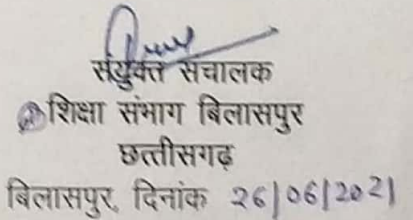 संयुक्त संचालक
शिक्षा संभाग बिलासपुर
छत्तीसगढ़
बिलासपुर, दिनांक 26/06/2021